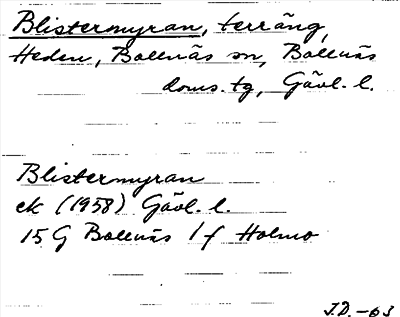 Blistermyran, terräng,
Heden, Bollnäs sn, Bollnäs
doms.tg, Gävl. l.
Blistermyran
ek (1958) Gävl. l.
15 G Bollnäs 1 f Holmo
J.D. -63